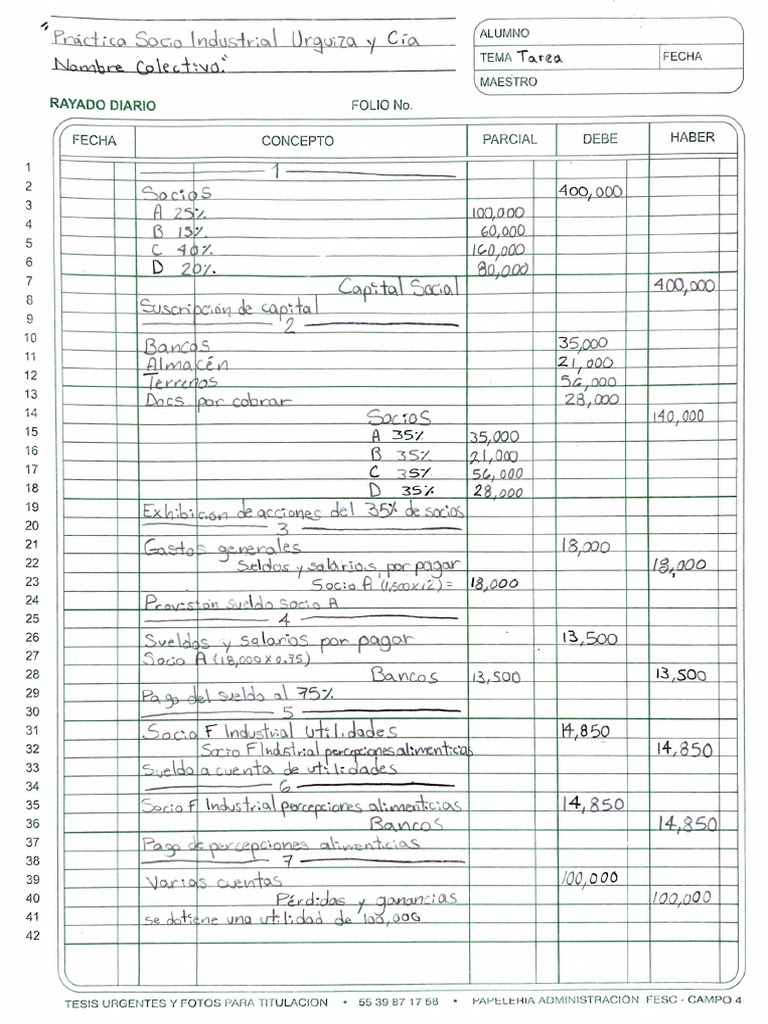 "Práctica Socio Industrial Urguiza y Cía
Nombre Colectivo."
ALUMNO
TEMA Tarea FECHA
MAESTRO
RAYADO DIARIO FOLIO No.
FECHA CONCEPTO PARCIAL DEBE HABER
1 1
2 Socios 400,000
3 A 25% 100,000
4 B 15% 60,000
5 C 40% 160,000
6 D 20% 80,000
7 Capital Social 400,000
8 Suscripción de capital
9 2
10 Bancos 35,000
11 Almacén 21,000
12 Terrenos 56,000
13 Docs por cobrar 28,000
14 Socios 140,000
15 A 35% 35,000
16 B 35% 21,000
17 C 35% 56,000
18 D 35% 28,000
19 Exhibición de acciones del 35% de socios
20 3
21 Gastos generales 18,000
22 Seldos y salarios por pagar 18,000
23 Socio A (1,500x12)= 18,000
24 Provisión sueldo socio A
25 4
26 Sueldos y salarios por pagar 13,500
27 Socio A (18,000x0.75)
28 Bancos 13,500 13,500
29 Pago del sueldo al 75%
30 5
31 Socio F Industrial Utilidades 14,850
32 Socio F Indstrial percepciones alimenticias 14,850
33 Sueldo a cuenta de utilidades
34 6
35 Socio F Industrial percepciones alimenticias 14,850
36 Bancos 14,850
37 Pago de percepciones alimenticias
38 7
39 Varias cuentas 100,000
40 Pérdidas y ganancias 100,000
41 se obtiene una utilidad de 100,000
42
TESIS URGENTES Y FOTOS PARA TITULACION • 55 39 87 17 58 • PAPELERIA ADMINISTRACION FESC - CAMPO 4